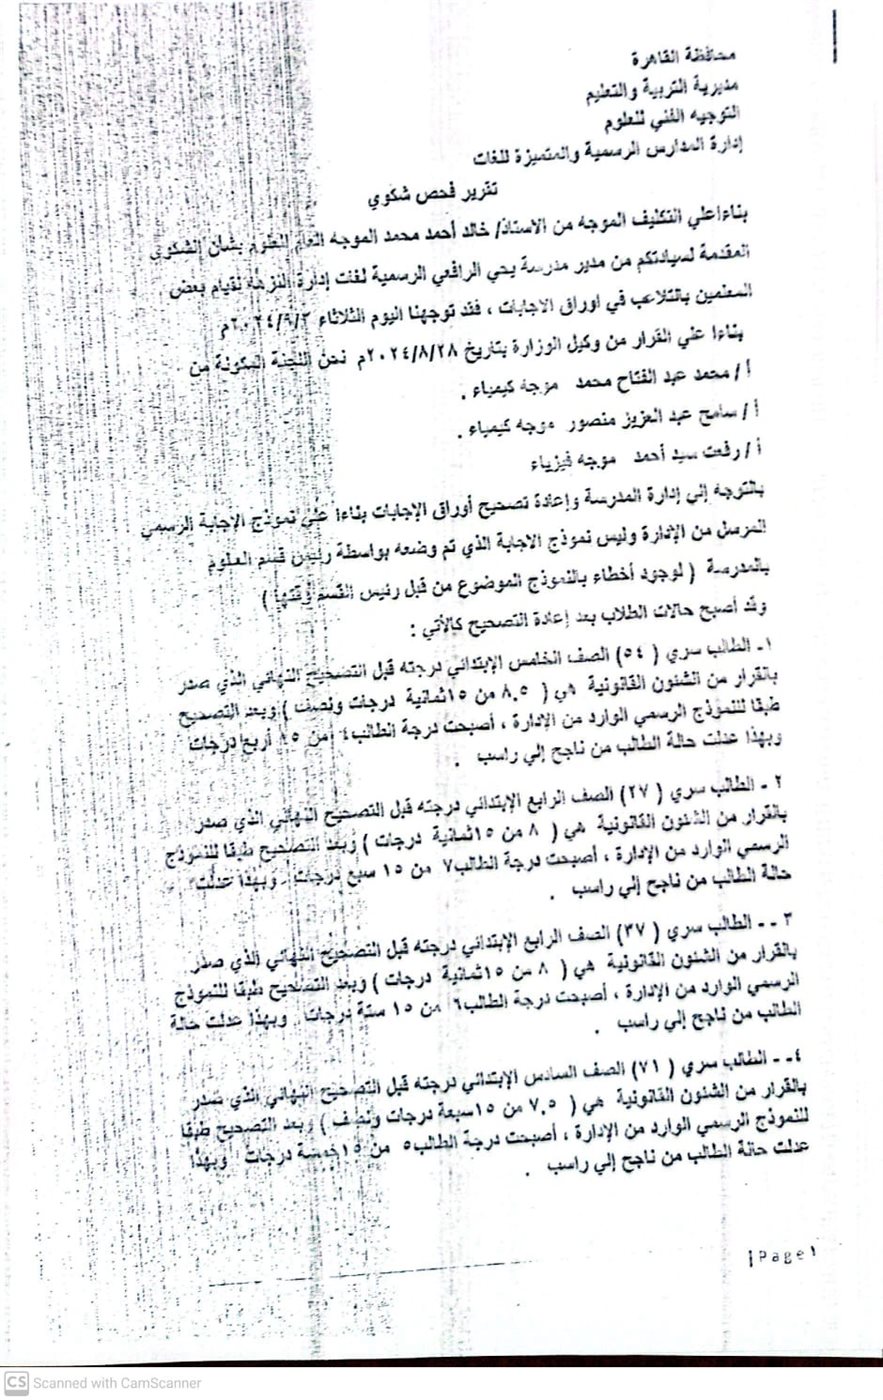 محافظة القاهرة
مديرية التربية والتعليم
التوجيه الفني للعلوم
إدارة المدارس الرسمية والمتميزة للغات
تقرير فحص شكوي
بناءاعلي التكليف الموجه من الاستاذ/ خالد أحمد محمد الموجه العام للعلوم بشأن الشكوي
المقدمة لسيادتكم من مدير مدرسة يحي الرافعي الرسمية لغات إدارة النزهة لقيام بعض
المعلمين بالتلاعب في اوراق الاجابات ، فقد توجهنا اليوم الثلاثاء ٢٠٢٤/٩/٣م
بناءا علي القرار من وكيل الوزارة بتاريخ ٢٠٢٤/٨/٢٨م نحن اللجنة المكونة من
أ / محمد عبد الفتاح محمد موجه كيمياء .
أ / سامح عبد العزيز منصور موجه كيمياء .
أ / رفعت سيد أحمد موجه فيزياء
بالتوجه إلي إدارة المدرسة وإعادة تصحيح أوراق الإجابات بناءا علي نموذج الاجابة الرسمي
المرسل من الإدارة وليس نموذج الاجابة الذي تم وضعه بواسطة رئيس قسم العلوم
بالمدرسة ( لوجود أخطاء بالنموذج الموضوع من قبل رئيس القسم وقتها )
وقد أصبح حالات الطلاب بعد إعادة التصحيح كالأتي :
١- الطالب سري ( ٥٤) الصف الخامس الإبتدائي درجته قبل التصحيح النهائي الذي صدر
بالقرار من الشئون القانونية هي ( ٨.٥ من ١٥ثمانية درجات ونصف ) وبعد التصحيح
طبقا للنموذج الرسمي الوارد من الإدارة ، أصبحت درجة الطالب٤ من ١٥ أربع درجات
وبهذا عدلت حالة الطالب من ناجح إلي راسب .
٢ - الطالب سري ( ٢٧) الصف الرابع الإبتدائي درجته قبل التصحيح النهائي الذي صدر
بالقرار من الشئون القانونية هي ( ٨ من ١٥ثمانية درجات ) وبعد التصحيح طبقا للنموذج
الرسمي الوارد من الإدارة ، أصبحت درجة الطالب٧ من ١٥ سبع درجات وبهذا عدلت
حالة الطالب من ناجح إلي راسب .
٣ -- الطالب سري ( ٣٧) الصف الرابع الإبتدائي درجته قبل التصحيح النهائي الذي صدر
بالقرار من الشئون القانونية هي ( ٨ من ١٥ثمانية درجات ) وبعد التصحيح طبقا للنموذج
الرسمي الوارد من الإدارة ، أصبحت درجة الطالب٦ من ١٥ ستة درجات وبهذا عدلت حالة
الطالب من ناجح إلي راسب .
٤-- الطالب سري ( ٧١) الصف السادس الإبتدائي درجته قبل التصحيح النهائي الذي صدر
بالقرار من الشئون القانونية هي ( ٧.٥ من ١٥سبعة درجات ونصف ) وبعد التصحيح طبقا
للنموذج الرسمي الوارد من الإدارة ، أصبحت درجة الطالب٥ من ١٥خمسة درجات وبهذا
عدلت حالة الطالب من ناجح إلي راسب .
|Page١
CS Scanned with CamScanner